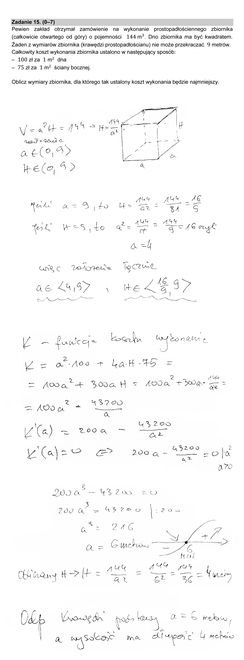 Zadanie 15. (0–7)
Pewien zakład otrzymał zamówienie na wykonanie prostopadłościennego zbiornika
(całkowicie otwartego od góry) o pojemności 144 m³. Dno zbiornika ma być kwadratem.
Żaden z wymiarów zbiornika (krawędzi prostopadłościanu) nie może przekraczać 9 metrów.
Całkowity koszt wykonania zbiornika ustalono w następujący sposób:
– 100 zł za 1 m² dna
– 75 zł za 1 m² ściany bocznej.
Oblicz wymiary zbiornika, dla którego tak ustalony koszt wykonania będzie najmniejszy.
V = a²H = 144 → H = 144/a²
założenie
a ∈ (0, 9⟩
H ∈ (0, 9⟩
H
a
a
Jeśli a = 9, to H = 144/a² = 144/81 = 16/9
Jeśli H = 9, to a² = 144/H = 144/9 = 16 czyli
a = 4
więc założenia łącznie
a ∈ ⟨4, 9⟩ , H ∈ ⟨16/9, 9⟩
K – funkcja kosztu wykonania
K = a²·100 + 4aH·75 =
= 100a² + 300aH = 100a² + 300a·144/a² =
= 100a² + 43200/a
K'(a) = 200a − 43200/a²
K'(a) = 0 ⇔ 200a − 43200/a² = 0 |·a²
a>0
200a³ − 43200 = 0
200a³ = 43200 |:200
a³ = 216
a = 6 metrów
− 6 + ↗
min
Obliczamy H → H = 144/a² = 144/6² = 144/36 = 4 metry
Odp Krawędź podstawy a = 6 metrów,
a wysokość ma długość 4 metrów